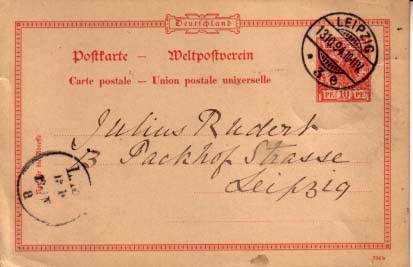 Deutschland
Postkarte – Weltpostverein
Carte postale – Union postale universelle
LEIPZIG
3
PF. 10 PF.
Julius Rudert
3 Packhof Strasse
Leipzig
8